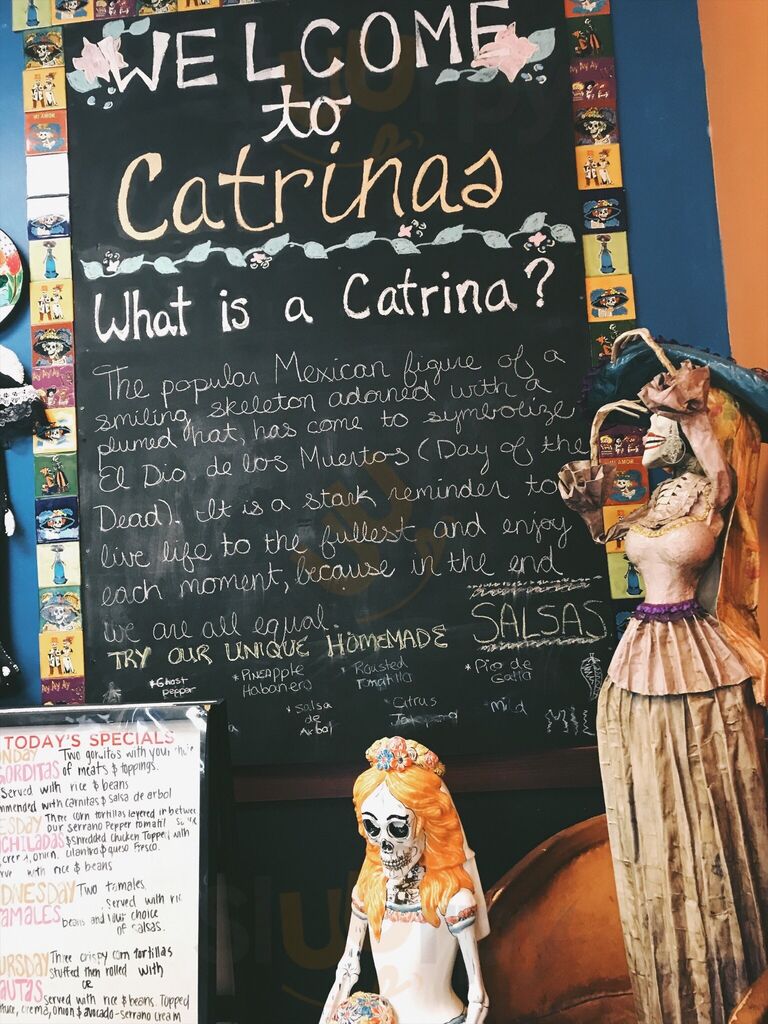 WELCOME
to
Catrinas
What is a Catrina?
The popular Mexican figure of a
smiling skeleton adorned with a
plumed hat, has come to symbolize
El Dia de los Muertos (Day of the
Dead). It is a stark reminder to
live life to the fullest and enjoy
each moment, because in the end
we are all equal.
TRY OUR UNIQUE HOMEMADE SALSAS
*Ghost pepper
*Pineapple Habanero
*Roasted
*Pico de Gallo
*Salsa de Arbol
Citrus
mild
TODAY'S SPECIALS
NDAY Two gorditas with your
GORDITAS of meats & toppings.
Served with rice & beans
mmended with carnitas & salsa de arbol
ESDAY Three corn tortillas layered in between
our Serrano Pepper
CHILADAS & shredded chicken Topped with
crema, onion, cilantro & queso fresco.
rve with rice & beans
DNESDAY Two tamales.
Served with ric
AMALES beans and your choice
of salsas.
URSDAY Three crispy corn tortillas
stuffed then rolled with
OR
AUTAS served with rice & beans. Topped
tuce, crema, onion & avocado-serrano cream
MI AMOR